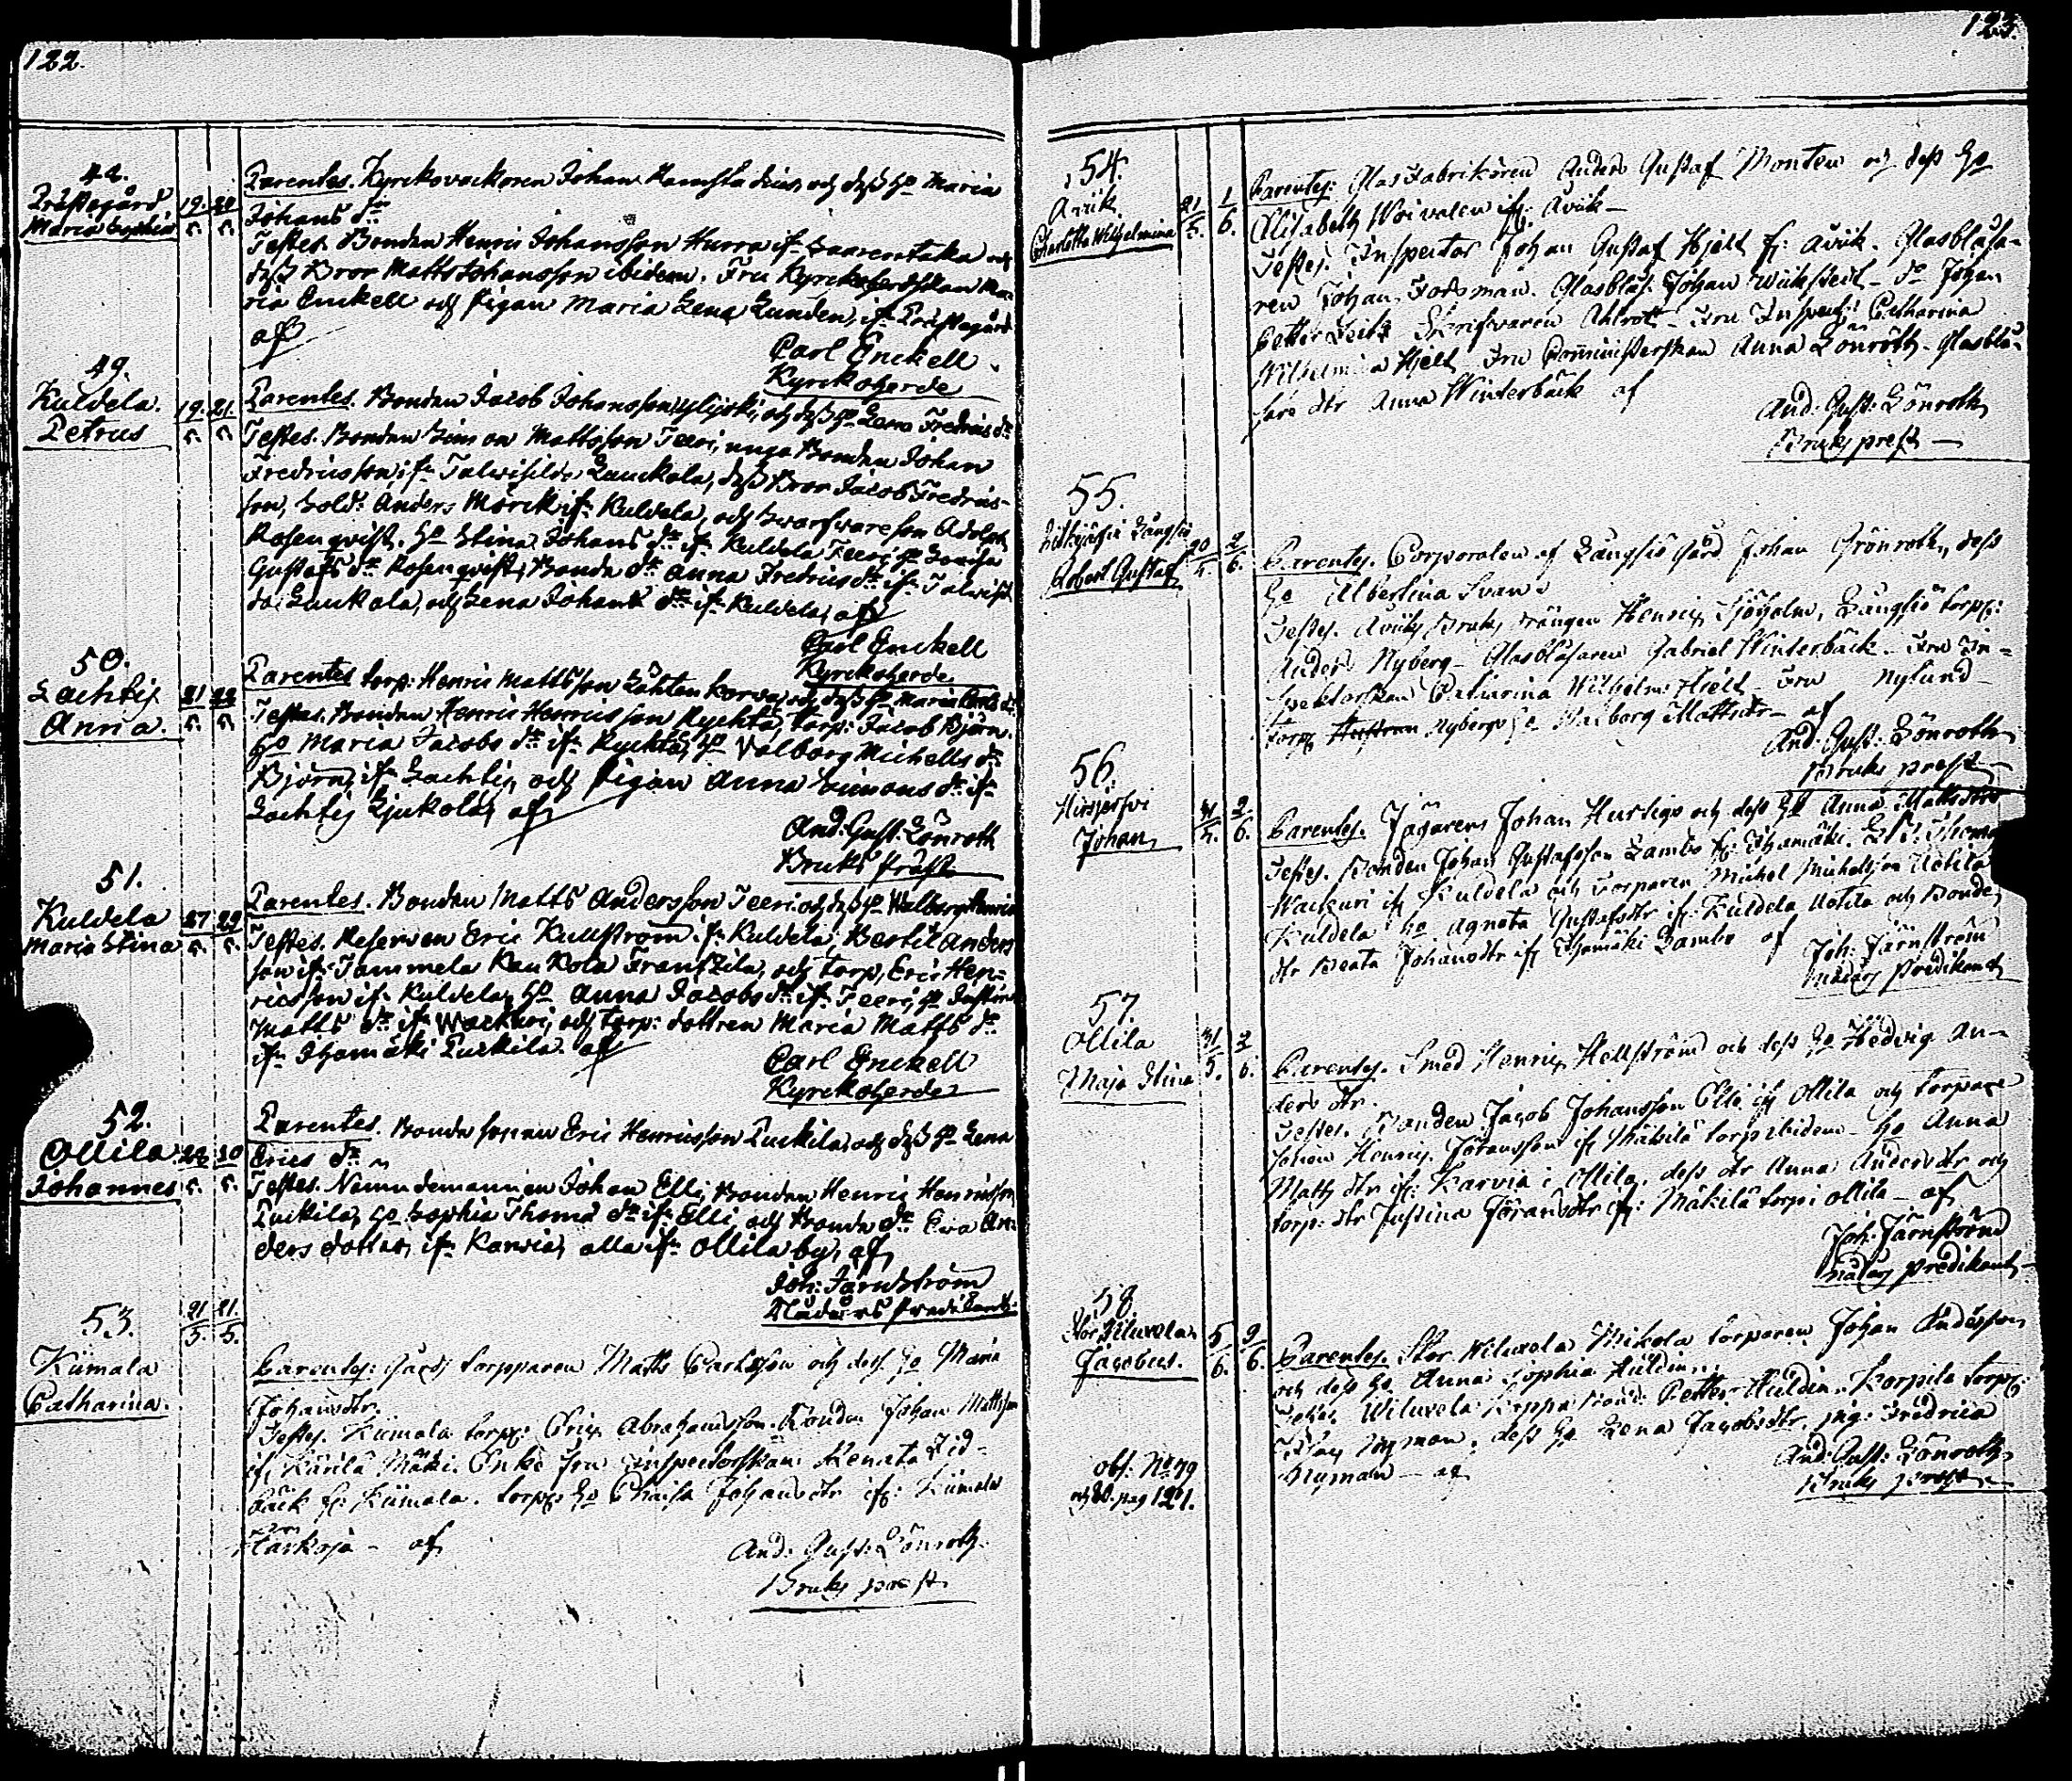 122.
48.
Prästegård
Maria Sophia
19. 20
5. 5.
Parentes. Kyrkovaktaren Johan och dess Ho Maria
Johans dr
Testes. Bonden Henric Johansson Hurra ifr Saarentaka och
dess Bror Matts Johansson ibidem. Fru Kyrkoherdskan Ma-
ria Enckell och Pigan Maria Lena Lunden, ifr Prästegård
af
Carl Enckell
Kyrkoherde
49.
Kuldela.
Petrus
19. 21.
5. 5.
Parentes. Bonden Jacob Johansson och dess Ho Lena Fredrics dr
Testes. Bonden Simon Mattsson Teeri, unga Bonden Johan
Fredricsson, ifr Talwisilda Lauckola, dess Bror Jacob Fredrics-
son, Sold: Anders Mörck ifr Kuldela, och Swarfware son Adolph
Rosenqvist. Ho Stina Johans dr ifr Kuldela Teeri, Ho
Gustafs dr Rosenqvist, Bonde dr Anna Fredrics dr ifr Talwisil
da Laukola, och Lena Johans dr ifr Kuldela, af
Carl Enckell
Kyrkoherde
50.
Lachtis
Anna.
21 22
5. 5.
Parentes torp: Henric Mattsson Lähten korva, och dess Ho Maria Carls dr
Testes. Bonden Henric Henricsson Rychtä, torp: Jacob Björn.
Ho Maria Jacobs dr ifr Ryckta, Ho Valborg Michells dr
Björn, ifr Lachtis, och Pigan Anna Simons dr ifr
Lachtis Liukola, af
And: Gust: Lönroth
Bruks präst
51.
Kuldela
Maria Stina
27 29
5. 5.
Parentes. Bonden Matts Andersson Teeri och dess Ho Walborg Henric
Testes. Reserven Eric Kullström ifr Kuldela, Bertil Anders
son ifr Tammela Kaukola Frantzila, och torp, Eric Hen-
ricsson ifr Kuldela, Ho Anna Jacobs dr ifr Teeri, Ho Justina
Matts dr ifr Wackuri, och torp: dottren Maria Matts dr
ifr Ihamäki Puckila. af
Carl Enckell
Kyrkoherde
52.
Ollila
Johannes
20
5. 5.
Parentes. Bonde sonen Eric Henricsson Puckila, och dess Ho Lena
Erics dr
Testes. Nämndemannen Johan Elli, Bonden Henric Henricsson
Puckila, Ho Sophia Thoms dr ifr Elli och Bonde dr Eva An-
ders dotter, ifr Karvia, alla ifr Ollila by, af
Joh: Järnström
Nådårs Predikant.
53.
Kiimala
Catharina.
21 21.
5. 5.
Parentes: Gårds torpparen Matts Carlsson och dess Ho Maria
Johansdtr.
Testes. Kiimala torp: Eric Abrahamsson. Bonden Johan Mattsson
ifr Kärilä Mäki. Enke Fru Inspectorskan Renata Lid-
bäck fr: Kiimala. torp: Ho Chaisa Johansdtr ifr: Kiimala
Harkoja - af
And: Gust: Lönroth.
Bruks prest
123.
54.
Avik
Charlotta Wilhelmina
21 1
5. 6.
Parentes: Glasfabrikören Anders Gustaf Monten och dess Ho
Elisabeth Woivalen ifr: Avik -
Testes. Inspector Johan Gustaf Hjelt fr: Avik. Glasblåsa-
ren Johan Forsman. Glasblås: Johan Wickstedt - do Johan
Petter Skrifvaren Ahlroth - Fru Inspect: Catharina
Wilhelmina Hjelt Fru Comministerskan Anna Lönroth - Glasblå-
sare dtr Anna Winterbäck af
And: Gust: Lönroth
Bruks prest -
55.
Långsjö
Robert Gustaf
20 2
5. 6.
Parentes. Corporalen af Långsjö Gård Johan Grönroth, dess
Ho Albertina Svan.
Testes. Aviks Bruks Drängen Henric Sjöholm, Långsjö torp:
Anders Nyberg - Glasblåsaren Gabriel Winterbäck - Fru In-
spektorskan Catharina Wilhelm: Hjelt - Fru Nylund
torp: Nybergs Ho Walborg Mattsdtr - af
And: Gust: Lönroth
Bruks prest -
56.
Hirsjerfvi
Johan
31 2
5. 6.
Parentes. Jägaren Johan Hurtig och dess Ho Anna Mattsdtr
Testes. Bonden Johan Gustafsson Lambo fr: Ihamäki. Thomas
Wackuri ifr Kuldela och Torparen Michel Michelsson Uotila
Kuldela Ho Agneta Gustafsdtr ifr: Kuldela Uotila och Bonde
dtr Beata Johansdtr ifr Ihamäki Lambo af
Joh: Järnström
Nådårs Predikant
57.
Ollila
Maja Stina
31 2
5. 6.
Parentes. Smed Henric Hellström och dess Ho Hedvig An-
ders dtr.
Testes. Bonden Jacob Johansson Elli ifr Ollila och torpare
sonen Henric Göransson ifr Mäkilä torp ibidem - Ho Anna
Matts dtr ifr: Karvia i Ollila, dess dtr Anna Andersdtr och
torp: dtr Justina Göransdtr ifr: Mäkilä torp i Ollila - af
Joh: Järnström
Nådårs Predikant
58.
Stor Wiluvela
Jacobus.
5 9
6. 6.
Parentes. Stor Wiluvela Mikola torparen Johan Andersson
och dess Ho Anna Sophia Huldin.
Testes Wiluvela Petter Huldin. Korpila torp:
Nyman, dess Ho Lena Jacobsdtr. pig: Fredrica
Nyman - af
And: Gust: Lönroth
Bruks prest
obs. No 79
och 80. pag 121.